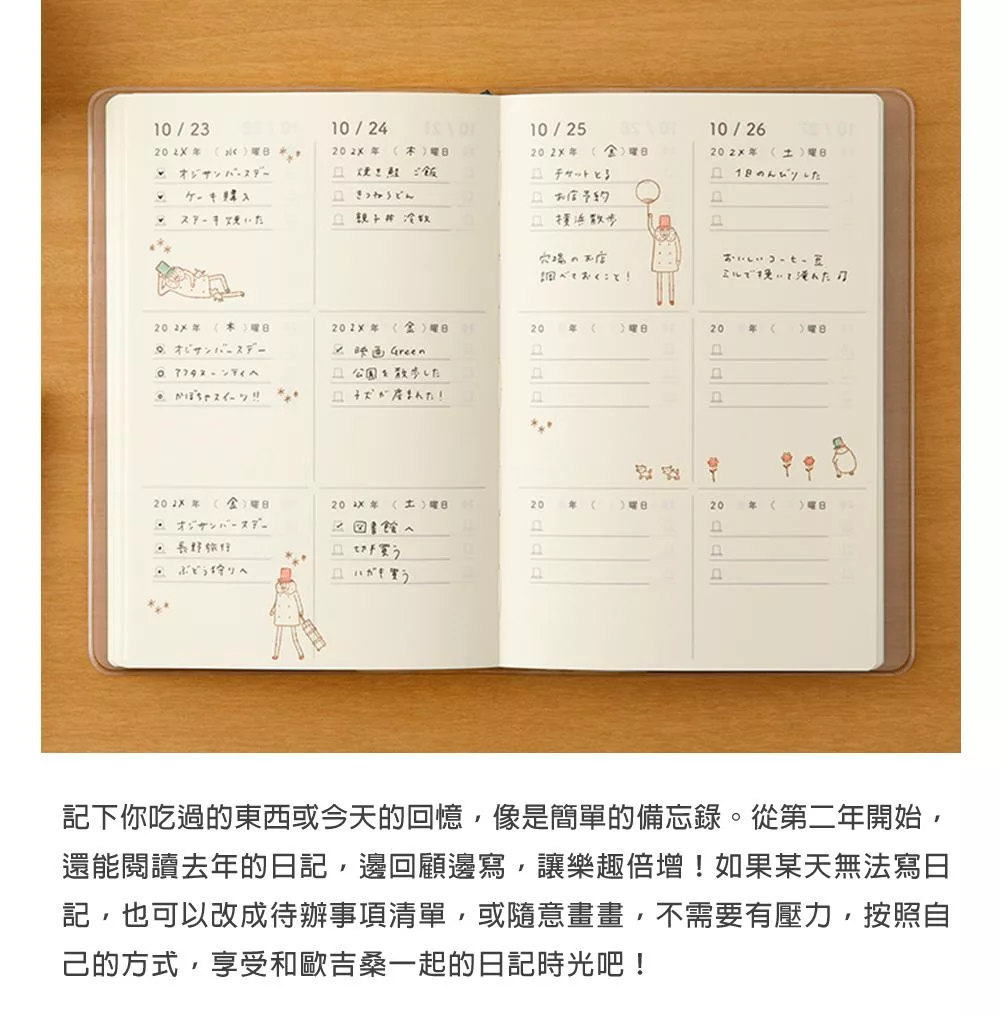 10 / 23
202X年 (水)曜日
オジサンバースデー
ケーキ購入
ステーキ焼いた
202X年 (木)曜日
オジサンバースデー
アフタヌーンティへ
かぼちゃスイーツ!!
202X年 (金)曜日
オジサンバースデー
長野旅行
ぶどう狩りへ
10 / 24
202X年 (木)曜日
焼き鮭 ご飯
きつねうどん
親子丼 冷奴
202X年 (金)曜日
映画 Green
公園を散歩した
子犬が産まれた!
202X年 (土)曜日
図書館へ
切手買う
ハガキ買う
10 / 25
202X年 (金)曜日
チケットとる
お店予約
横浜散歩
穴場のお店
調べておくこと!
20 年 ( )曜日
20 年 ( )曜日
10 / 26
202X年 (土)曜日
1日のんびりした
おいしいコーヒー豆
ミルで挽いて淹れた♫
20 年 ( )曜日
20 年 ( )曜日
記下你吃過的東西或今天的回憶，像是簡單的備忘錄。從第二年開始，
還能閱讀去年的日記，邊回顧邊寫，讓樂趣倍增！如果某天無法寫日
記，也可以改成待辦事項清單，或隨意畫畫，不需要有壓力，按照自
己的方式，享受和歐吉桑一起的日記時光吧！